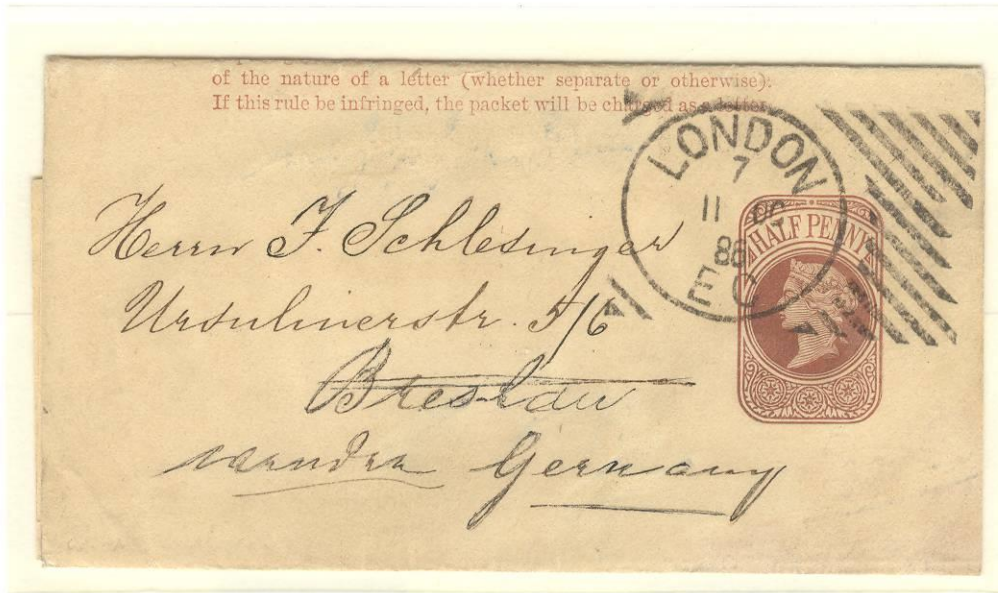 of the nature of a letter (whether separate or otherwise).
If this rule be infringed, the packet will be charged as a letter.
LONDON
7
11
86
EC
HALF PENNY
Herrn F. Schlesinger
Ursulinerstr. 5/6
Breslau
Germany